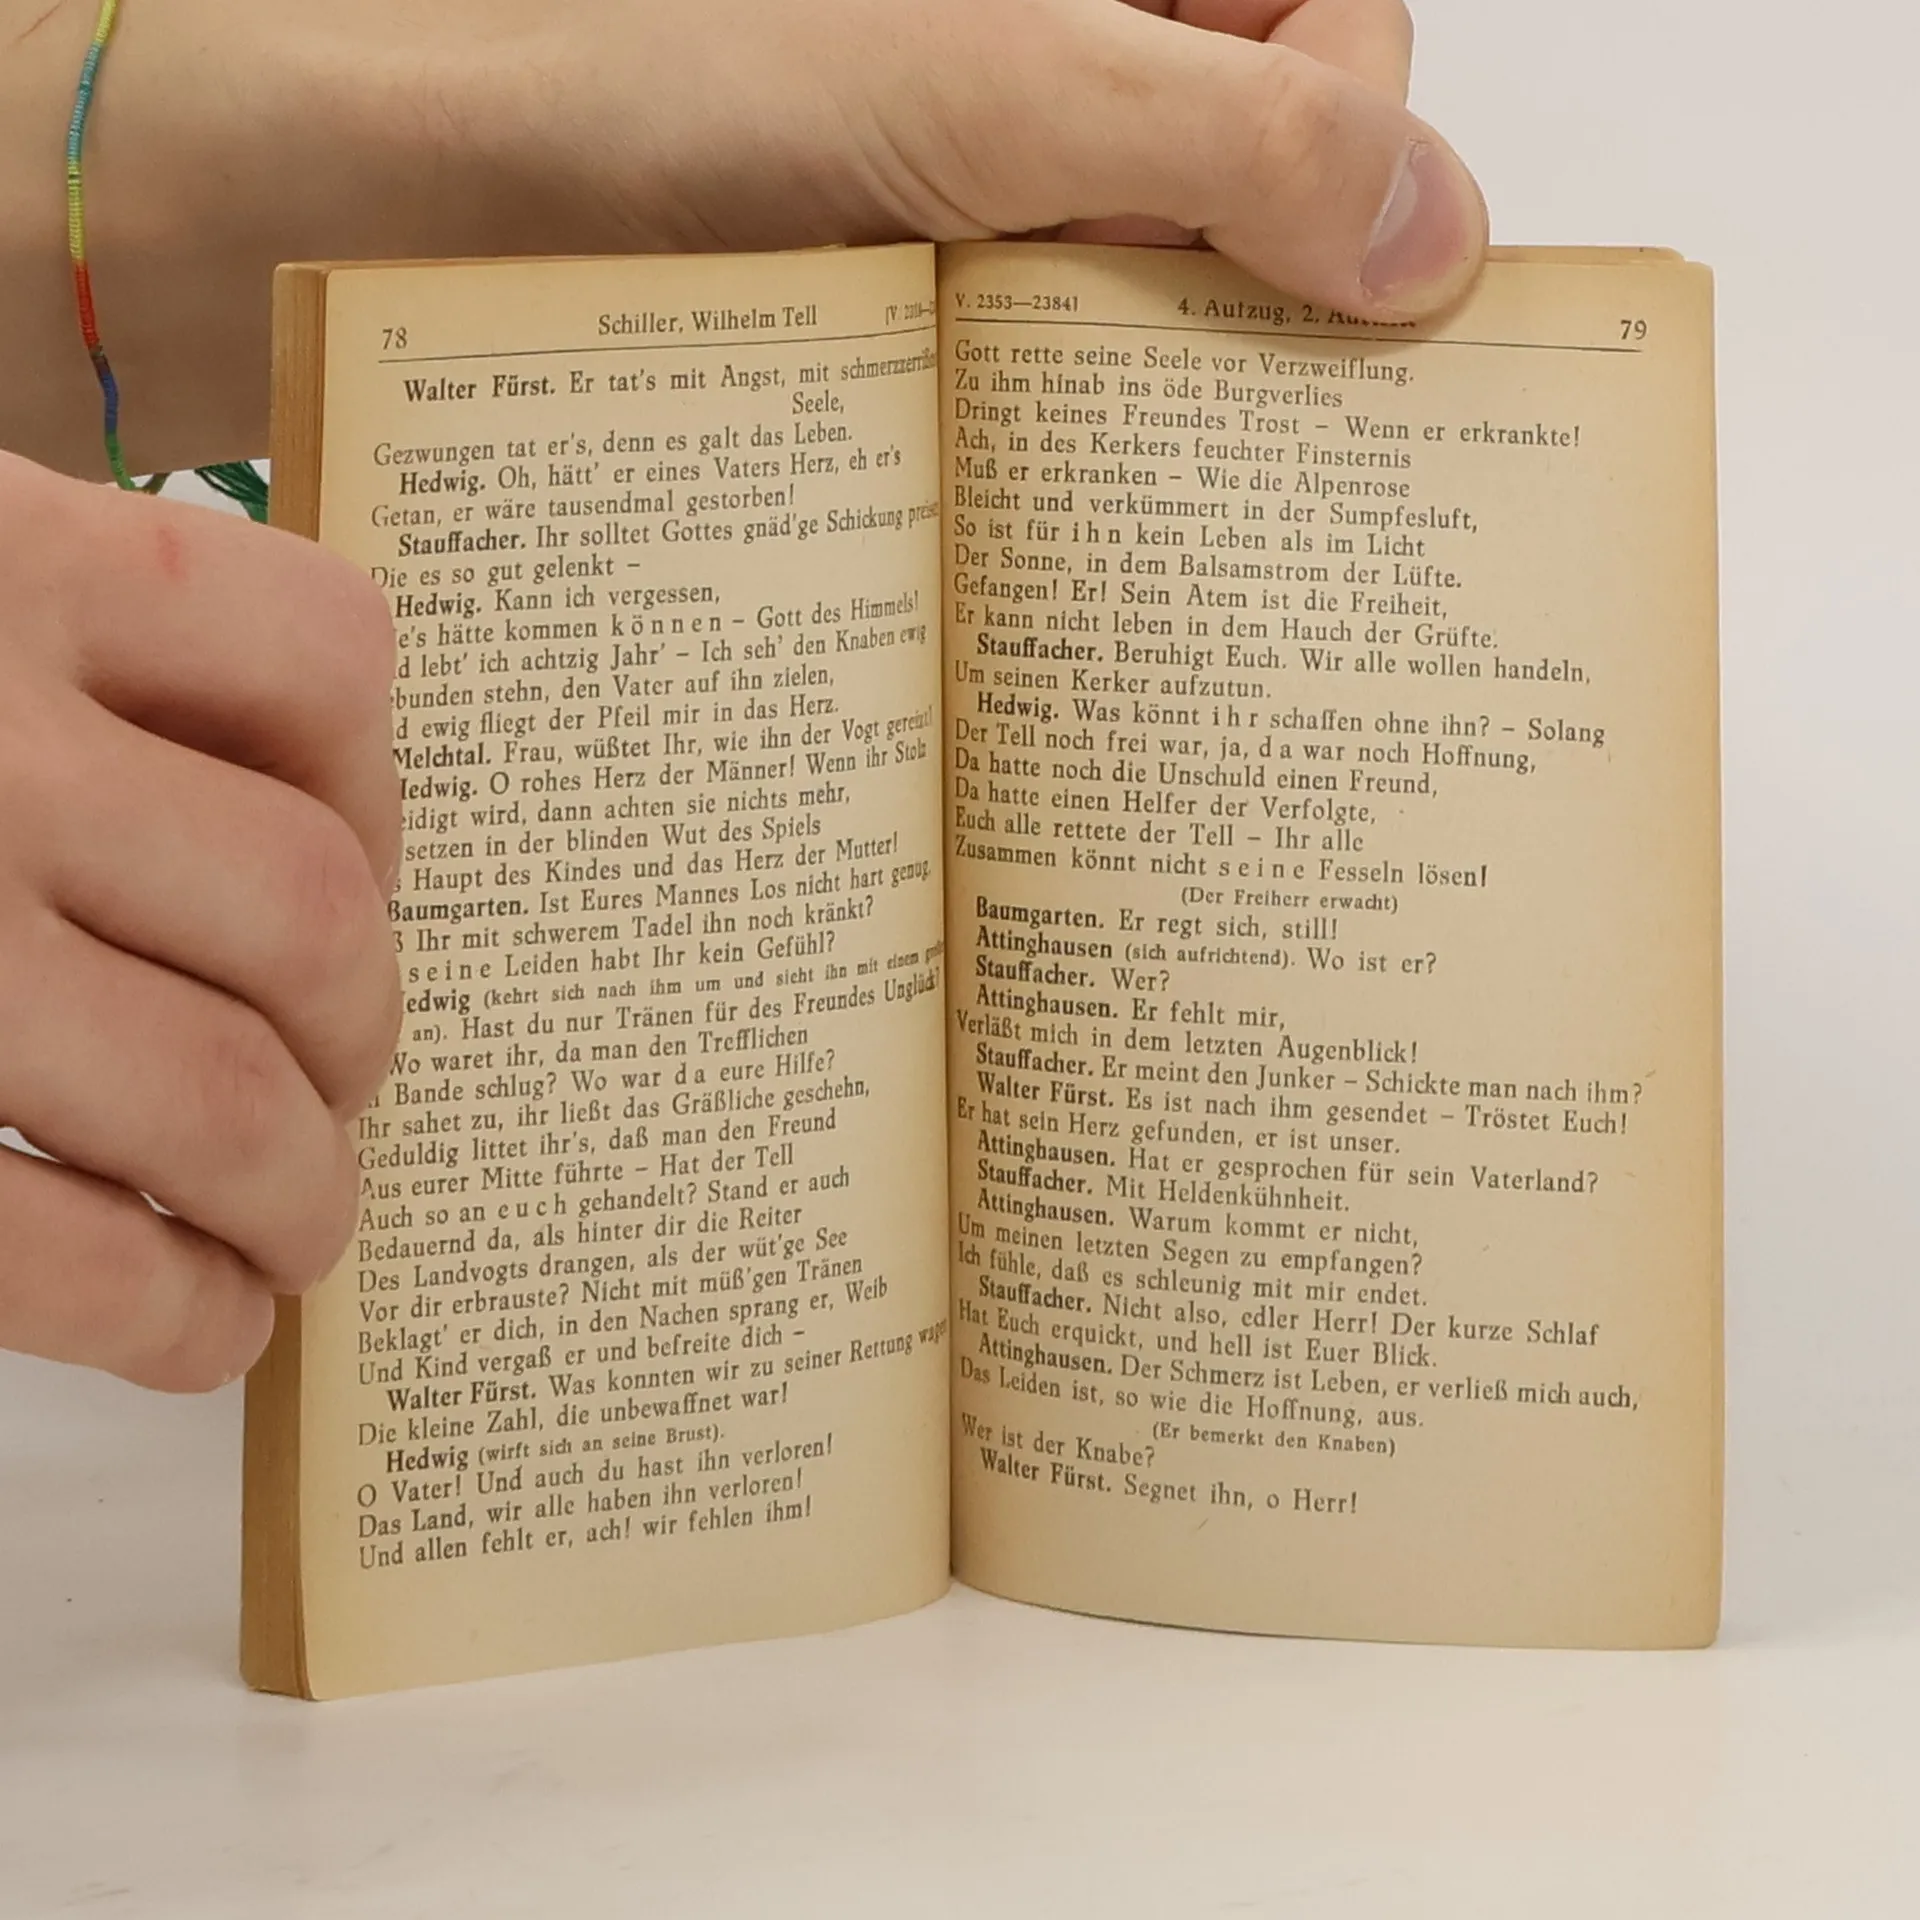 78 Schiller, Wilhelm Tell
Walter Fürst. Er tat's mit Angst, mit
Seele,
Gezwungen tat er's, denn es galt das Leben.
Hedwig. Oh, hätt' er eines Vaters Herz, eh er's
Getan, er wäre tausendmal gestorben!
Stauffacher. Ihr solltet Gottes gnäd'ge Schickung
Die es so gut gelenkt –
Hedwig. Kann ich vergessen,
hätte kommen können – Gott des Himmels!
lebt' ich achtzig Jahr' – Ich seh' den Knaben ewig
stehn, den Vater auf ihn zielen,
ewig fliegt der Pfeil mir in das Herz.
Melchtal. Frau, wüßtet Ihr, wie ihn der Vogt gereizt!
Hedwig. O rohes Herz der Männer! Wenn ihr Stolz
wird, dann achten sie nichts mehr,
setzen in der blinden Wut des Spiels
Haupt des Kindes und das Herz der Mutter!
Baumgarten. Ist Eures Mannes Los nicht hart genug,
Ihr mit schwerem Tadel ihn noch kränkt?
seine Leiden habt Ihr kein Gefühl?
Hedwig (kehrt sich nach ihm um und sieht ihn mit einem
an). Hast du nur Tränen für des Freundes Unglück?
Wo waret ihr, da man den Trefflichen
Bande schlug? Wo war da eure Hilfe?
Ihr sahet zu, ihr ließt das Gräßliche geschehn,
Geduldig littet ihr's, daß man den Freund
Aus eurer Mitte führte – Hat der Tell
Auch so an euch gehandelt? Stand er auch
Bedauernd da, als hinter dir die Reiter
Des Landvogts drangen, als der wüt'ge See
Vor dir erbrauste? Nicht mit müß'gen Tränen
Beklagt' er dich, in den Nachen sprang er, Weib
Und Kind vergaß er und befreite dich –
Walter Fürst. Was konnten wir zu seiner Rettung wagen
Die kleine Zahl, die unbewaffnet war!
Hedwig (wirft sich an seine Brust).
O Vater! Und auch du hast ihn verloren!
Das Land, wir alle haben ihn verloren!
Und allen fehlt er, ach! wir fehlen ihm!
V. 2353—2384] 4. Aufzug, 2. 79
Gott rette seine Seele vor Verzweiflung.
Zu ihm hinab ins öde Burgverlies
Dringt keines Freundes Trost – Wenn er erkrankte!
Ach, in des Kerkers feuchter Finsternis
Muß er erkranken – Wie die Alpenrose
Bleicht und verkümmert in der Sumpfesluft,
So ist für ihn kein Leben als im Licht
Der Sonne, in dem Balsamstrom der Lüfte.
Gefangen! Er! Sein Atem ist die Freiheit,
Er kann nicht leben in dem Hauch der Grüfte.
Stauffacher. Beruhigt Euch. Wir alle wollen handeln,
Um seinen Kerker aufzutun.
Hedwig. Was könnt ihr schaffen ohne ihn? – Solang
Der Tell noch frei war, ja, da war noch Hoffnung,
Da hatte noch die Unschuld einen Freund,
Da hatte einen Helfer der Verfolgte,
Euch alle rettete der Tell – Ihr alle
Zusammen könnt nicht seine Fesseln lösen!
(Der Freiherr erwacht)
Baumgarten. Er regt sich, still!
Attinghausen (sich aufrichtend). Wo ist er?
Stauffacher. Wer?
Attinghausen. Er fehlt mir,
Verläßt mich in dem letzten Augenblick!
Stauffacher. Er meint den Junker – Schickte man nach ihm?
Walter Fürst. Es ist nach ihm gesendet – Tröstet Euch!
Er hat sein Herz gefunden, er ist unser.
Attinghausen. Hat er gesprochen für sein Vaterland?
Stauffacher. Mit Heldenkühnheit.
Attinghausen. Warum kommt er nicht,
Um meinen letzten Segen zu empfangen?
Ich fühle, daß es schleunig mit mir endet.
Stauffacher. Nicht also, edler Herr! Der kurze Schlaf
Hat Euch erquickt, und hell ist Euer Blick.
Attinghausen. Der Schmerz ist Leben, er verließ mich auch,
Das Leiden ist, so wie die Hoffnung, aus.
(Er bemerkt den Knaben)
Wer ist der Knabe?
Walter Fürst. Segnet ihn, o Herr!